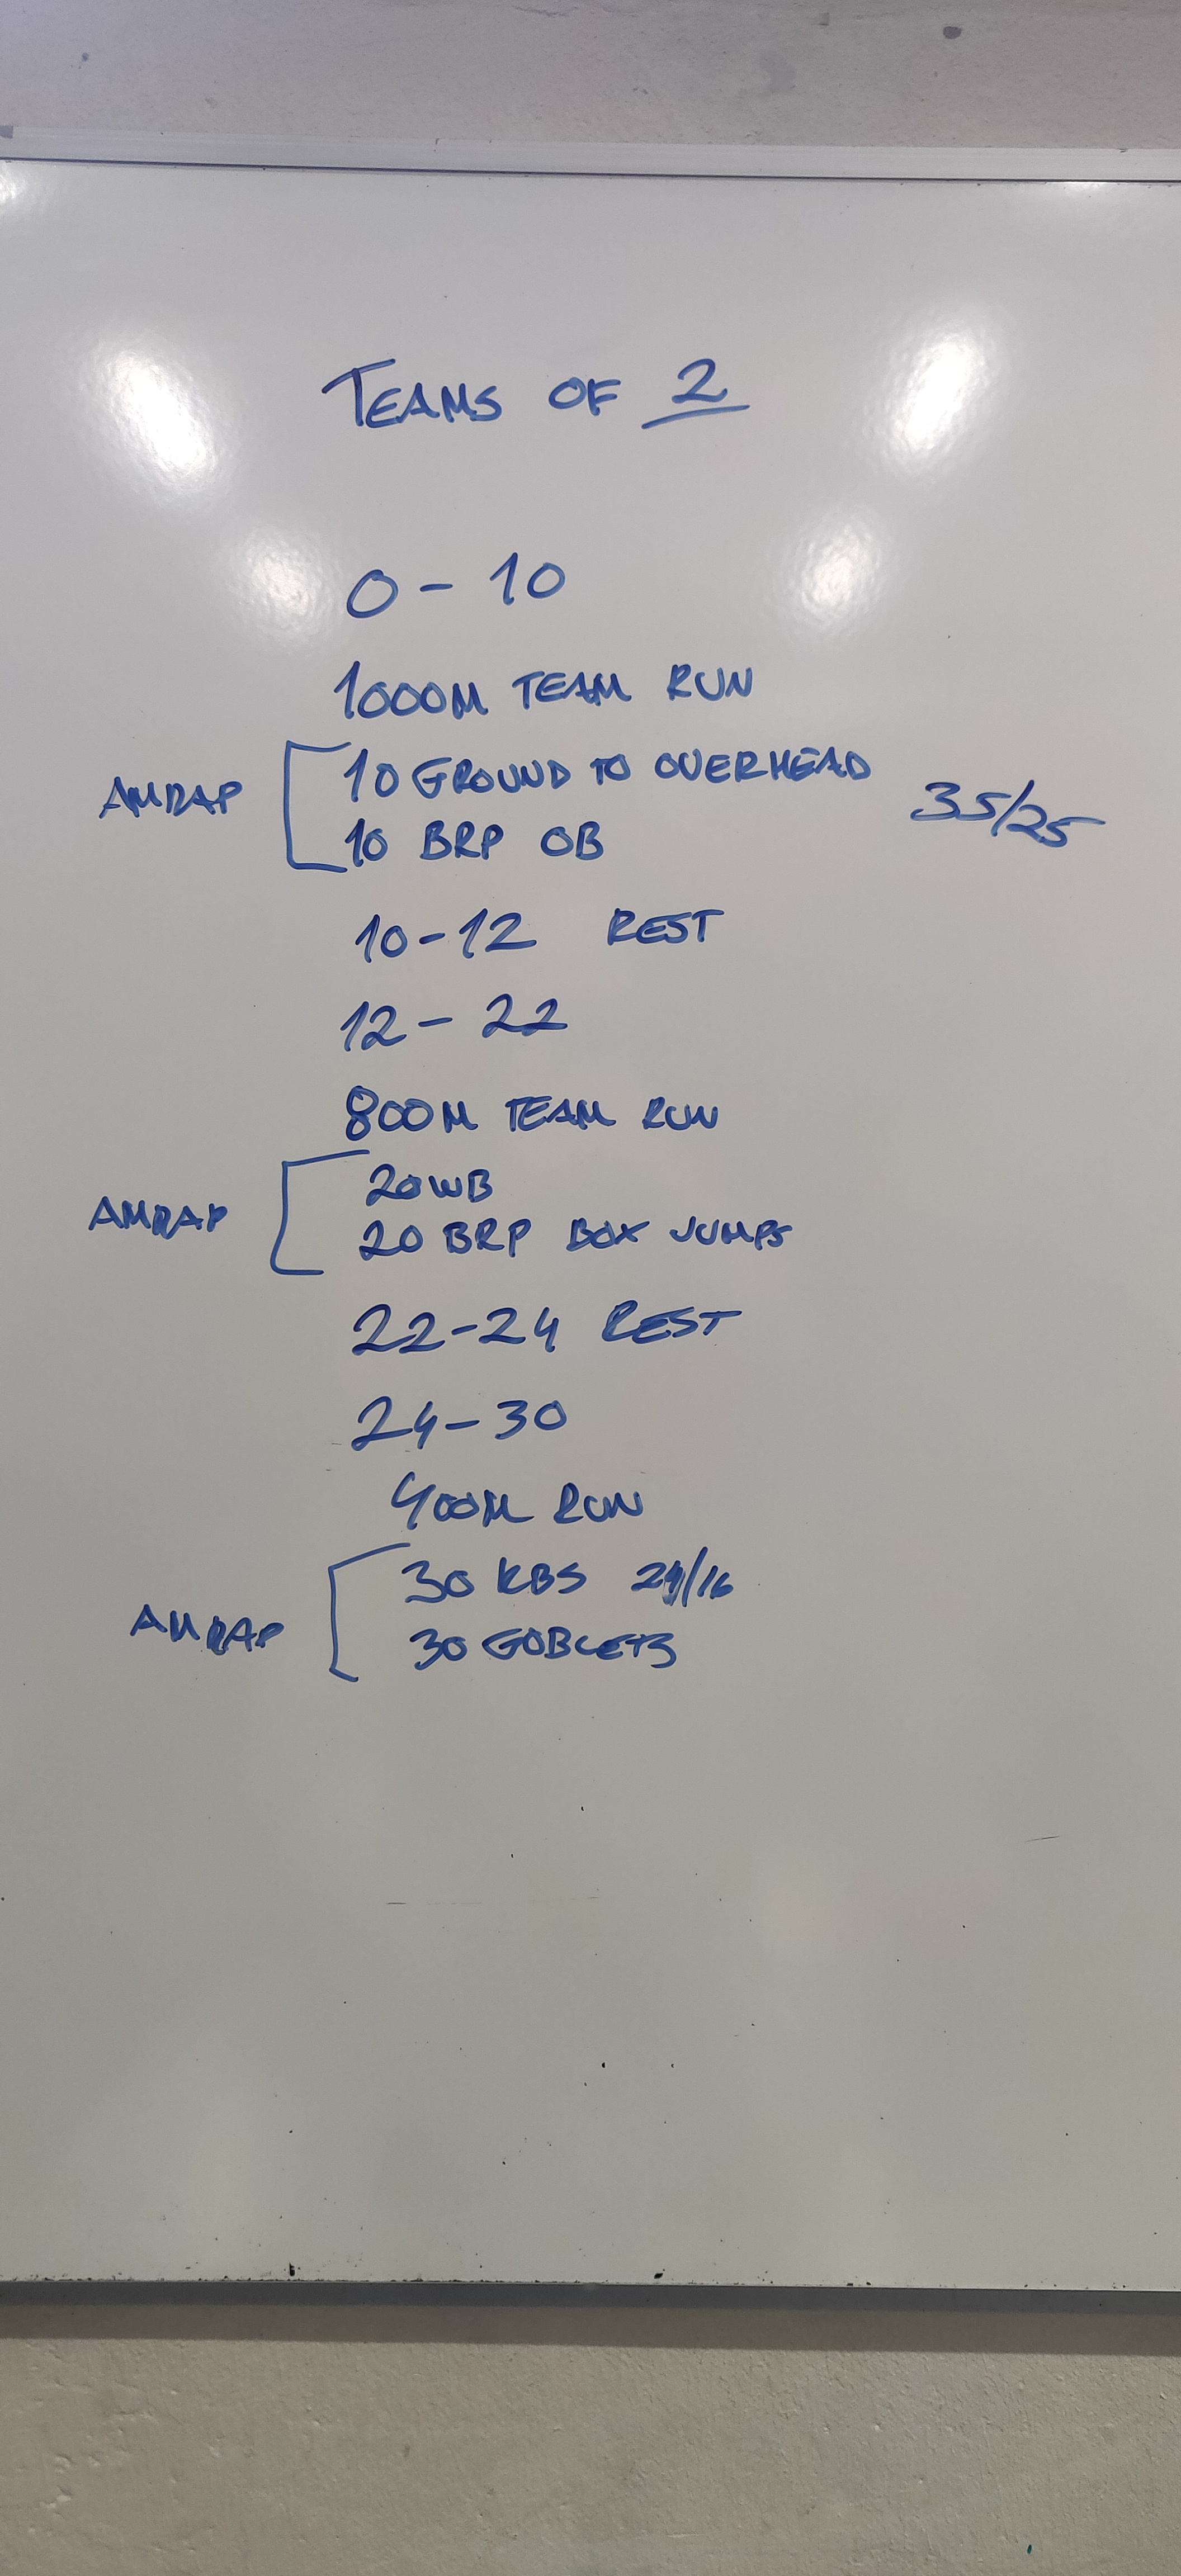 TEAMS OF 2
0 - 10
1000M TEAM RUN
AMRAP 10 GROUND TO OVERHEAD 35/25
10 BRP OB
10-12 REST
12 - 22
800M TEAM RUN
AMRAP 20 WB
20 BRP BOX JUMPS
22-24 REST
24-30
400M RUN
AMRAP 30 KBS 24/16
30 GOBLETS